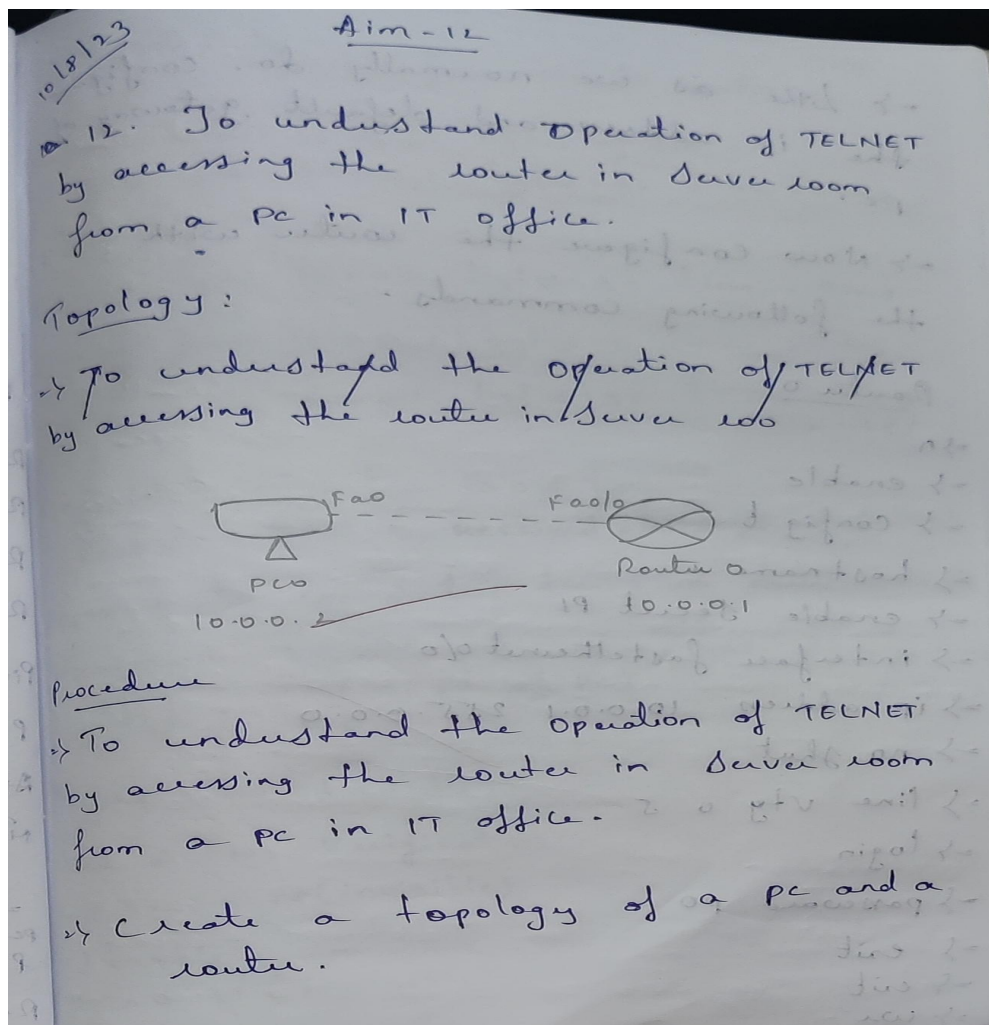 10/8/23
Aim-12
12. To understand operation of TELNET
by accessing the router in Server room
from a PC in IT office.
Topology:
-> To understand the operation of TELNET
by accessing the router in Server roo
Fa0
Fa0/0
PC0
Router 0
10.0.0.2
10.0.0.1
Procedure
=> To understand the operation of TELNET
by accessing the router in Server room
from a PC in IT office.
=> Create a topology of a PC and a
router.